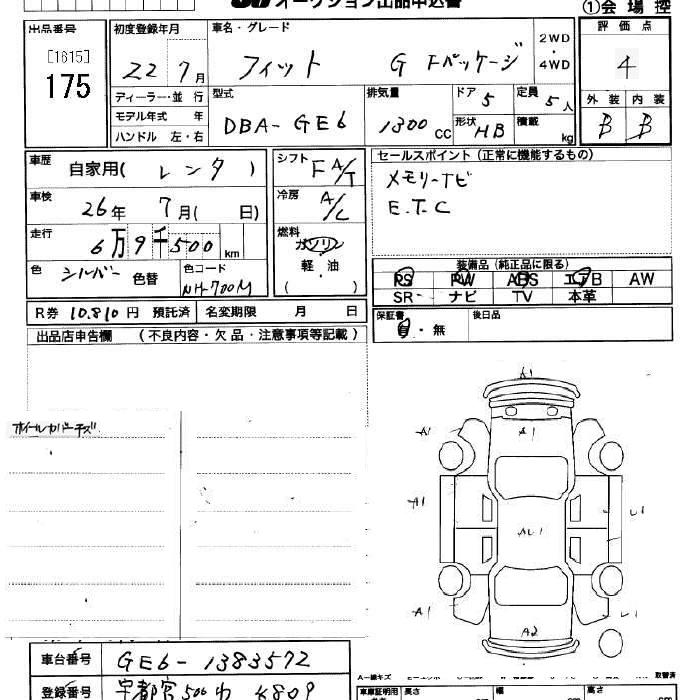 オークション出品申込書
①会場控
出品番号
[1615]
175
初度登録年月
22 7月
車名・グレード
フィット G Fパッケージ
2WD
・
4WD
評価点
4
外装 内装
B B
ディーラー・並行
モデル年式 年
ハンドル 左・右
型式
DBA-GE6
排気量
1300 CC
ドア 5
形状 HB
定員 5人
積載 kg
車歴
自家用( レンタ )
車検
26年 7月( 日)
走行
6万9千500 km
色
シルバー 色替
色コード
NH-700M
シフト
FA/T
冷房
A/C
燃料
ガソリン
軽・油
( )
セールスポイント(正常に機能するもの)
メモリーナビ
E.T.C
装備品(純正品に限る)
PS PW ABS エアB AW
SR ナビ TV 本革
R券 10.810円 預託済 名変期限 月 日
保証書
有・無
後日品
出品店申告欄 (不良内容・欠品・注意事項等記載)
ホイールカバーキズ
A1
A1
A1
L1
AL1
A1
L1
A2
車台番号
GE6-1383572
登録番号
宇都宮 506 わ K809
A-線キズ
取替済
車庫証明用
長さ
幅
高さ